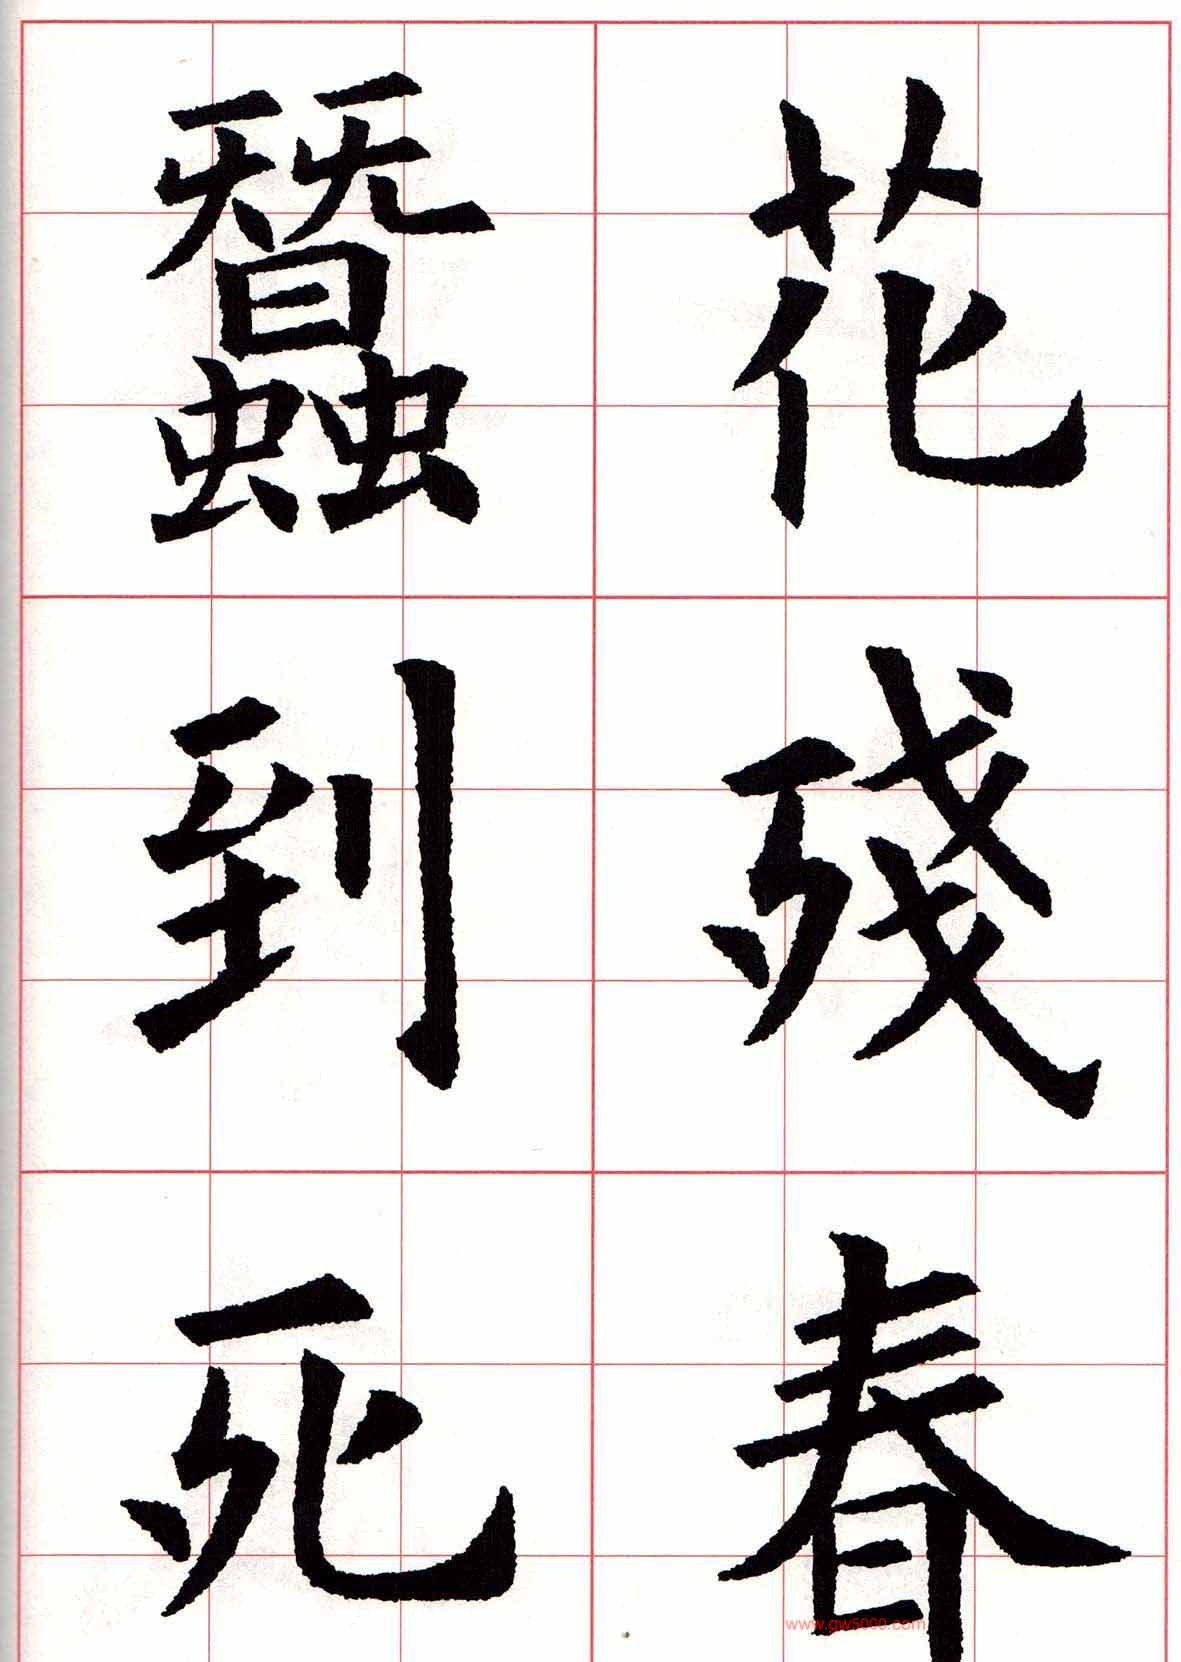 花殘春
蠶到死
www.gw5000.com